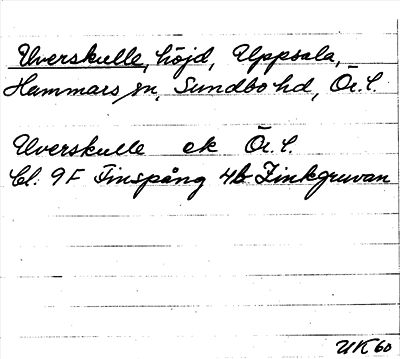 Uverskulle, höjd, Uppsala,
Hammars sn, Sundbo hd, Ör. l.
Uverskulle ek Ör. l.
Bl. 9F Finspång 4b Zinkgruvan
UK 60